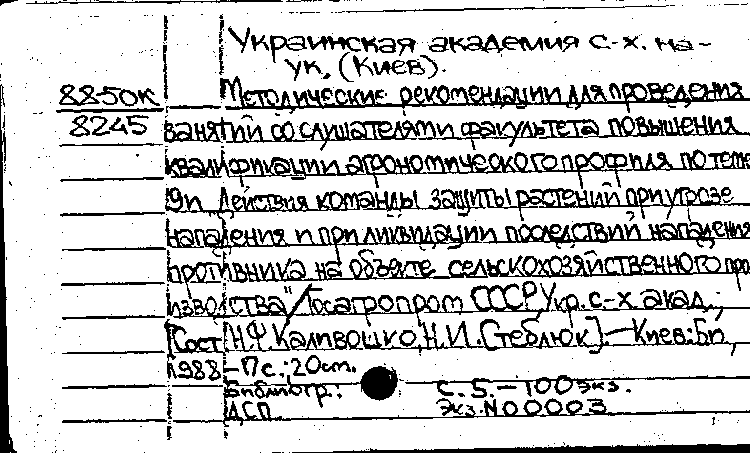 Украинская академия с.-х. на-
ук, (Киев).
8850к Методические рекомендации для проведения
8245 занятий со слушателями факультета повышения
квалификации агрономического профиля по теме
9п „Действия команды защиты растений при угрозе
нападения и при ликвидации последствий нападения
противника на объекте сельскохозяйственного про
изводства" / Госагропром СССР, Укр. с.-х. акад.;
[Сост. Н.Ф. Каливошко, Н.И. Стеблюк]. — Киев: Бп,
1988 — 17с.; 20см.
Библиогр.: с. 5. — 100 экз.
ДСП. Экз. N 00003